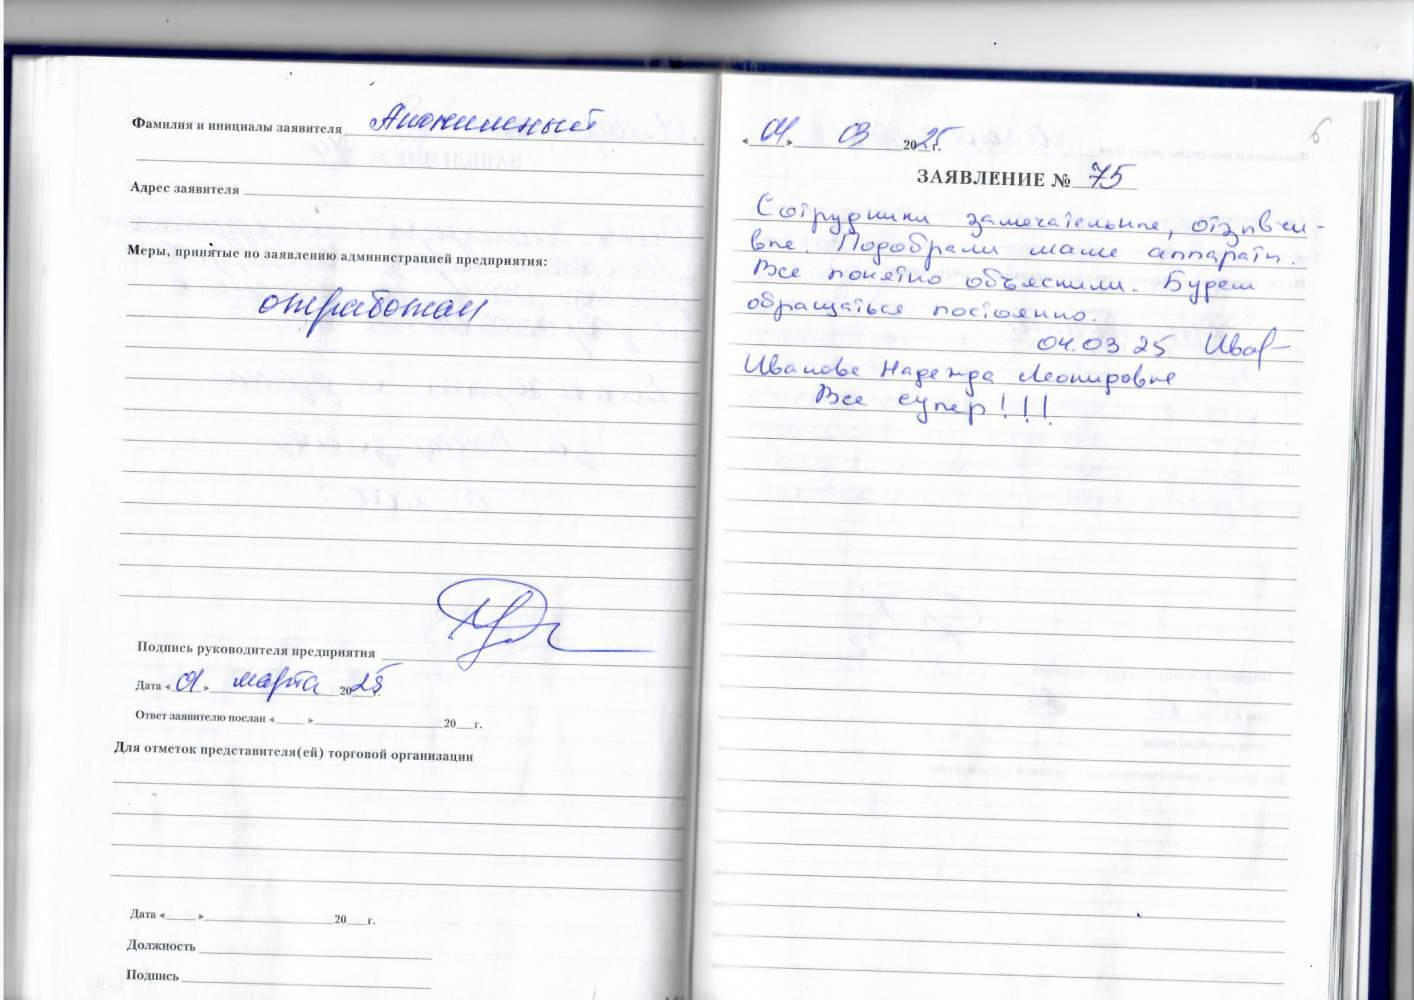 Фамилия и инициалы заявителя Анонимный
Адрес заявителя
Меры, принятые по заявлению администрацией предприятия:
отработан
Подпись руководителя предприятия
Дата « 01 » марта 2025
Ответ заявителю послан « » 20 г.
Для отметок представителя(ей) торговой организации
Дата « » 20 г.
Должность
Подпись
6
« 04 » 03 2025 г.
ЗАЯВЛЕНИЕ № 75
Сотрудники замечательные, отзывчи-
вые. Подобрали маме аппараты.
Все понятно объяснили. Будем
обращаться постоянно.
04.03.25
Иванова Надежда Леонировне
Все супер!!!